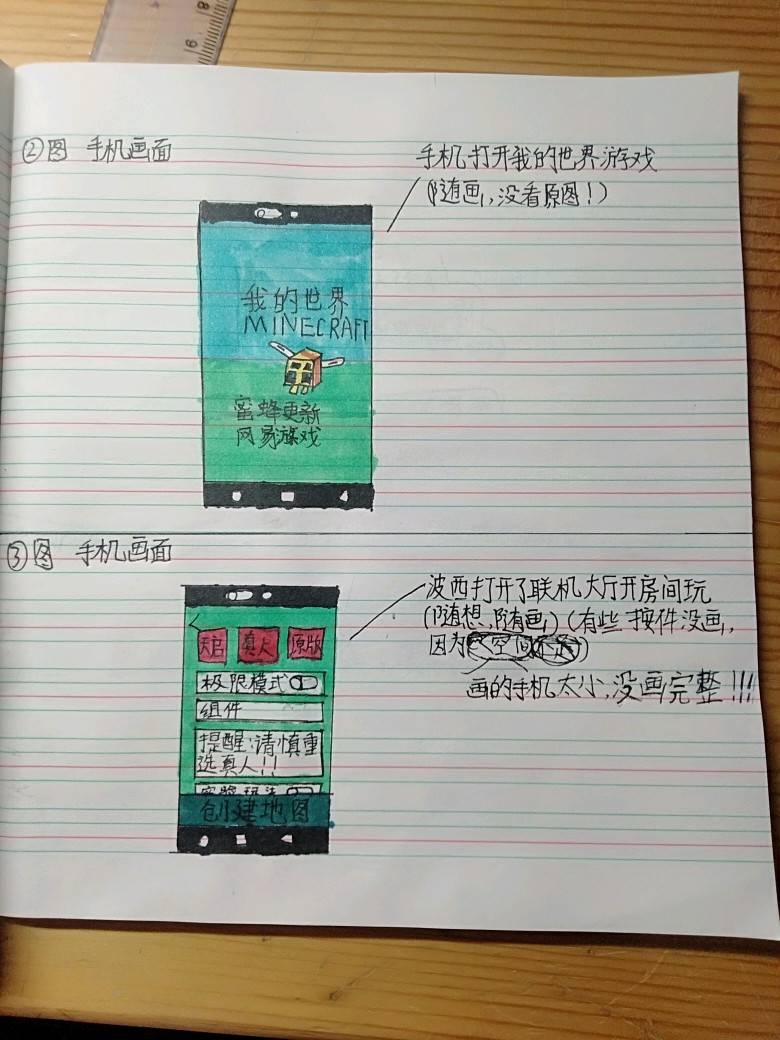 ②图 手机画面
手机打开我的世界游戏
(随画,没看原图!)
我的世界
MINECRAFT
蜜蜂更新
网易游戏
③图 手机画面
波西打开了联机大厅开房间玩
(随想,随画)(有些按件没画,
因为
画的手机太小,没画完整!!!
天启 真人 原版
极限模式
组件
提醒:请慎重
选真人!!
创建地图
8
9